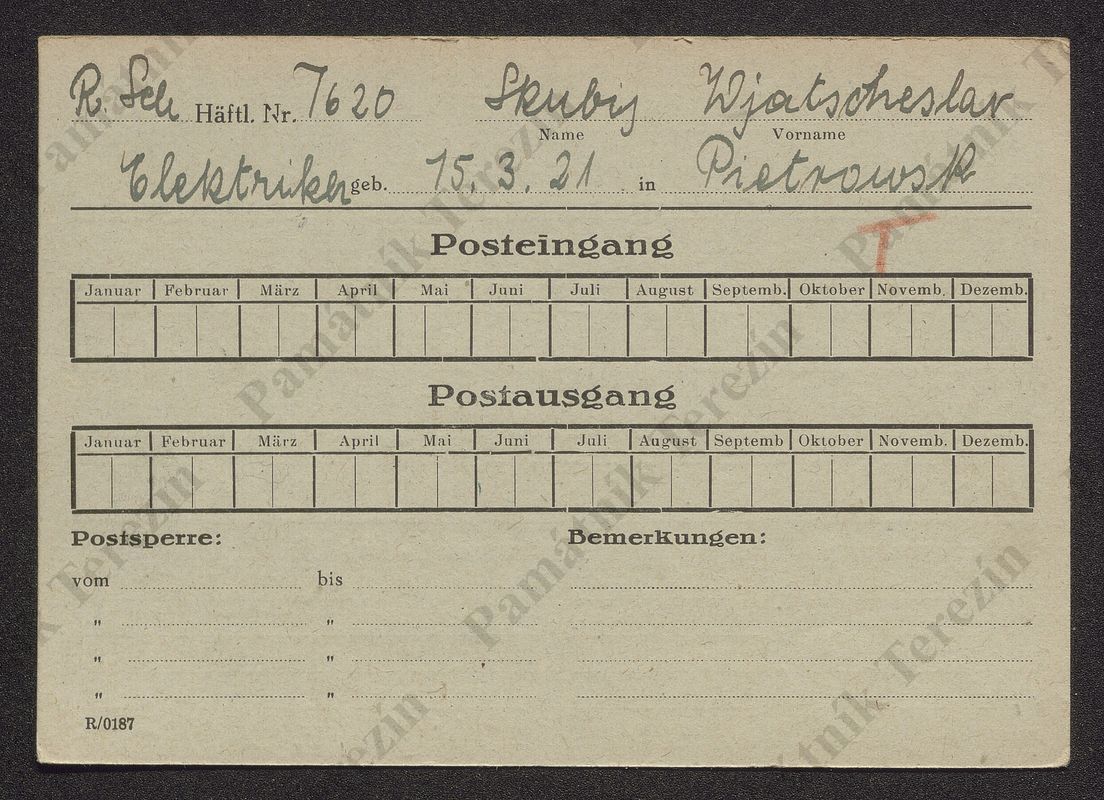 R. Sch Häftl. Nr. 7620 Skubij Wjatscheslav
Name Vorname
Elektriker geb. 15.3.21 in Pietrowsk
T
Posteingang
Januar Februar März April Mai Juni Juli August Septemb. Oktober Novemb. Dezemb.
Postausgang
Januar Februar März April Mai Juni Juli August Septemb Oktober Novemb. Dezemb.
Postsperre: Bemerkungen:
vom bis
" "
" "
" "
R/0187
Památník Terezín